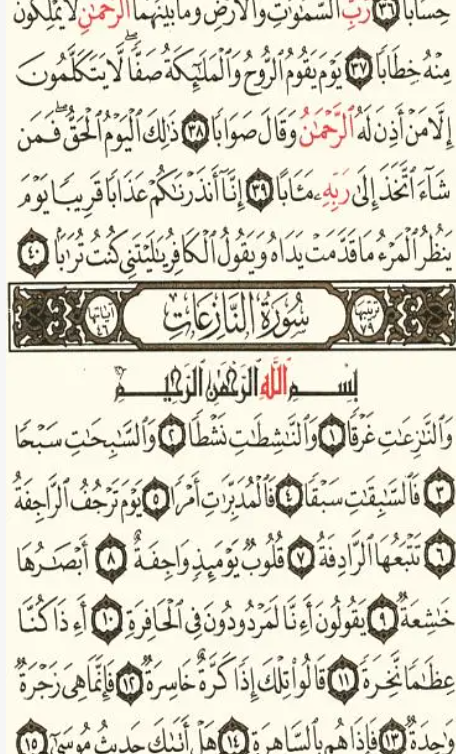 حِسَابًا ٣٦ رَّبِّ ٱلسَّمَٰوَٰتِ وَٱلْأَرْضِ وَمَا بَيْنَهُمَا ٱلرَّحْمَٰنِ لَا يَمْلِكُونَ
مِنْهُ خِطَابًا ٣٧ يَوْمَ يَقُومُ ٱلرُّوحُ وَٱلْمَلَٰٓئِكَةُ صَفًّا لَّا يَتَكَلَّمُونَ
إِلَّا مَنْ أَذِنَ لَهُ ٱلرَّحْمَٰنُ وَقَالَ صَوَابًا ٣٨ ذَٰلِكَ ٱلْيَوْمُ ٱلْحَقُّ فَمَن
شَآءَ ٱتَّخَذَ إِلَىٰ رَبِّهِۦ مَـَٔابًا ٣٩ إِنَّآ أَنذَرْنَٰكُمْ عَذَابًا قَرِيبًا يَوْمَ
يَنظُرُ ٱلْمَرْءُ مَا قَدَّمَتْ يَدَاهُ وَيَقُولُ ٱلْكَافِرُ يَٰلَيْتَنِى كُنتُ تُرَٰبًۢا ٤٠
ترتيبها ٧٩ سُورَةُ النَّازِعَاتِ آياتها ٤٦
بِسْمِ ٱللَّهِ ٱلرَّحْمَٰنِ ٱلرَّحِيمِ
وَٱلنَّٰزِعَٰتِ غَرْقًا ١ وَٱلنَّٰشِطَٰتِ نَشْطًا ٢ وَٱلسَّٰبِحَٰتِ سَبْحًا
٣ فَٱلسَّٰبِقَٰتِ سَبْقًا ٤ فَٱلْمُدَبِّرَٰتِ أَمْرًا ٥ يَوْمَ تَرْجُفُ ٱلرَّاجِفَةُ
٦ تَتْبَعُهَا ٱلرَّادِفَةُ ٧ قُلُوبٌ يَوْمَئِذٍ وَاجِفَةٌ ٨ أَبْصَٰرُهَا
خَٰشِعَةٌ ٩ يَقُولُونَ أَءِنَّا لَمَرْدُودُونَ فِى ٱلْحَافِرَةِ ١٠ أَءِذَا كُنَّا
عِظَٰمًا نَّخِرَةً ١١ قَالُوا۟ تِلْكَ إِذًا كَرَّةٌ خَاسِرَةٌ ١٢ فَإِنَّمَا هِىَ زَجْرَةٌ
وَٰحِدَةٌ ١٣ فَإِذَا هُم بِٱلسَّاهِرَةِ ١٤ هَلْ أَتَىٰكَ حَدِيثُ مُوسَىٰٓ ١٥